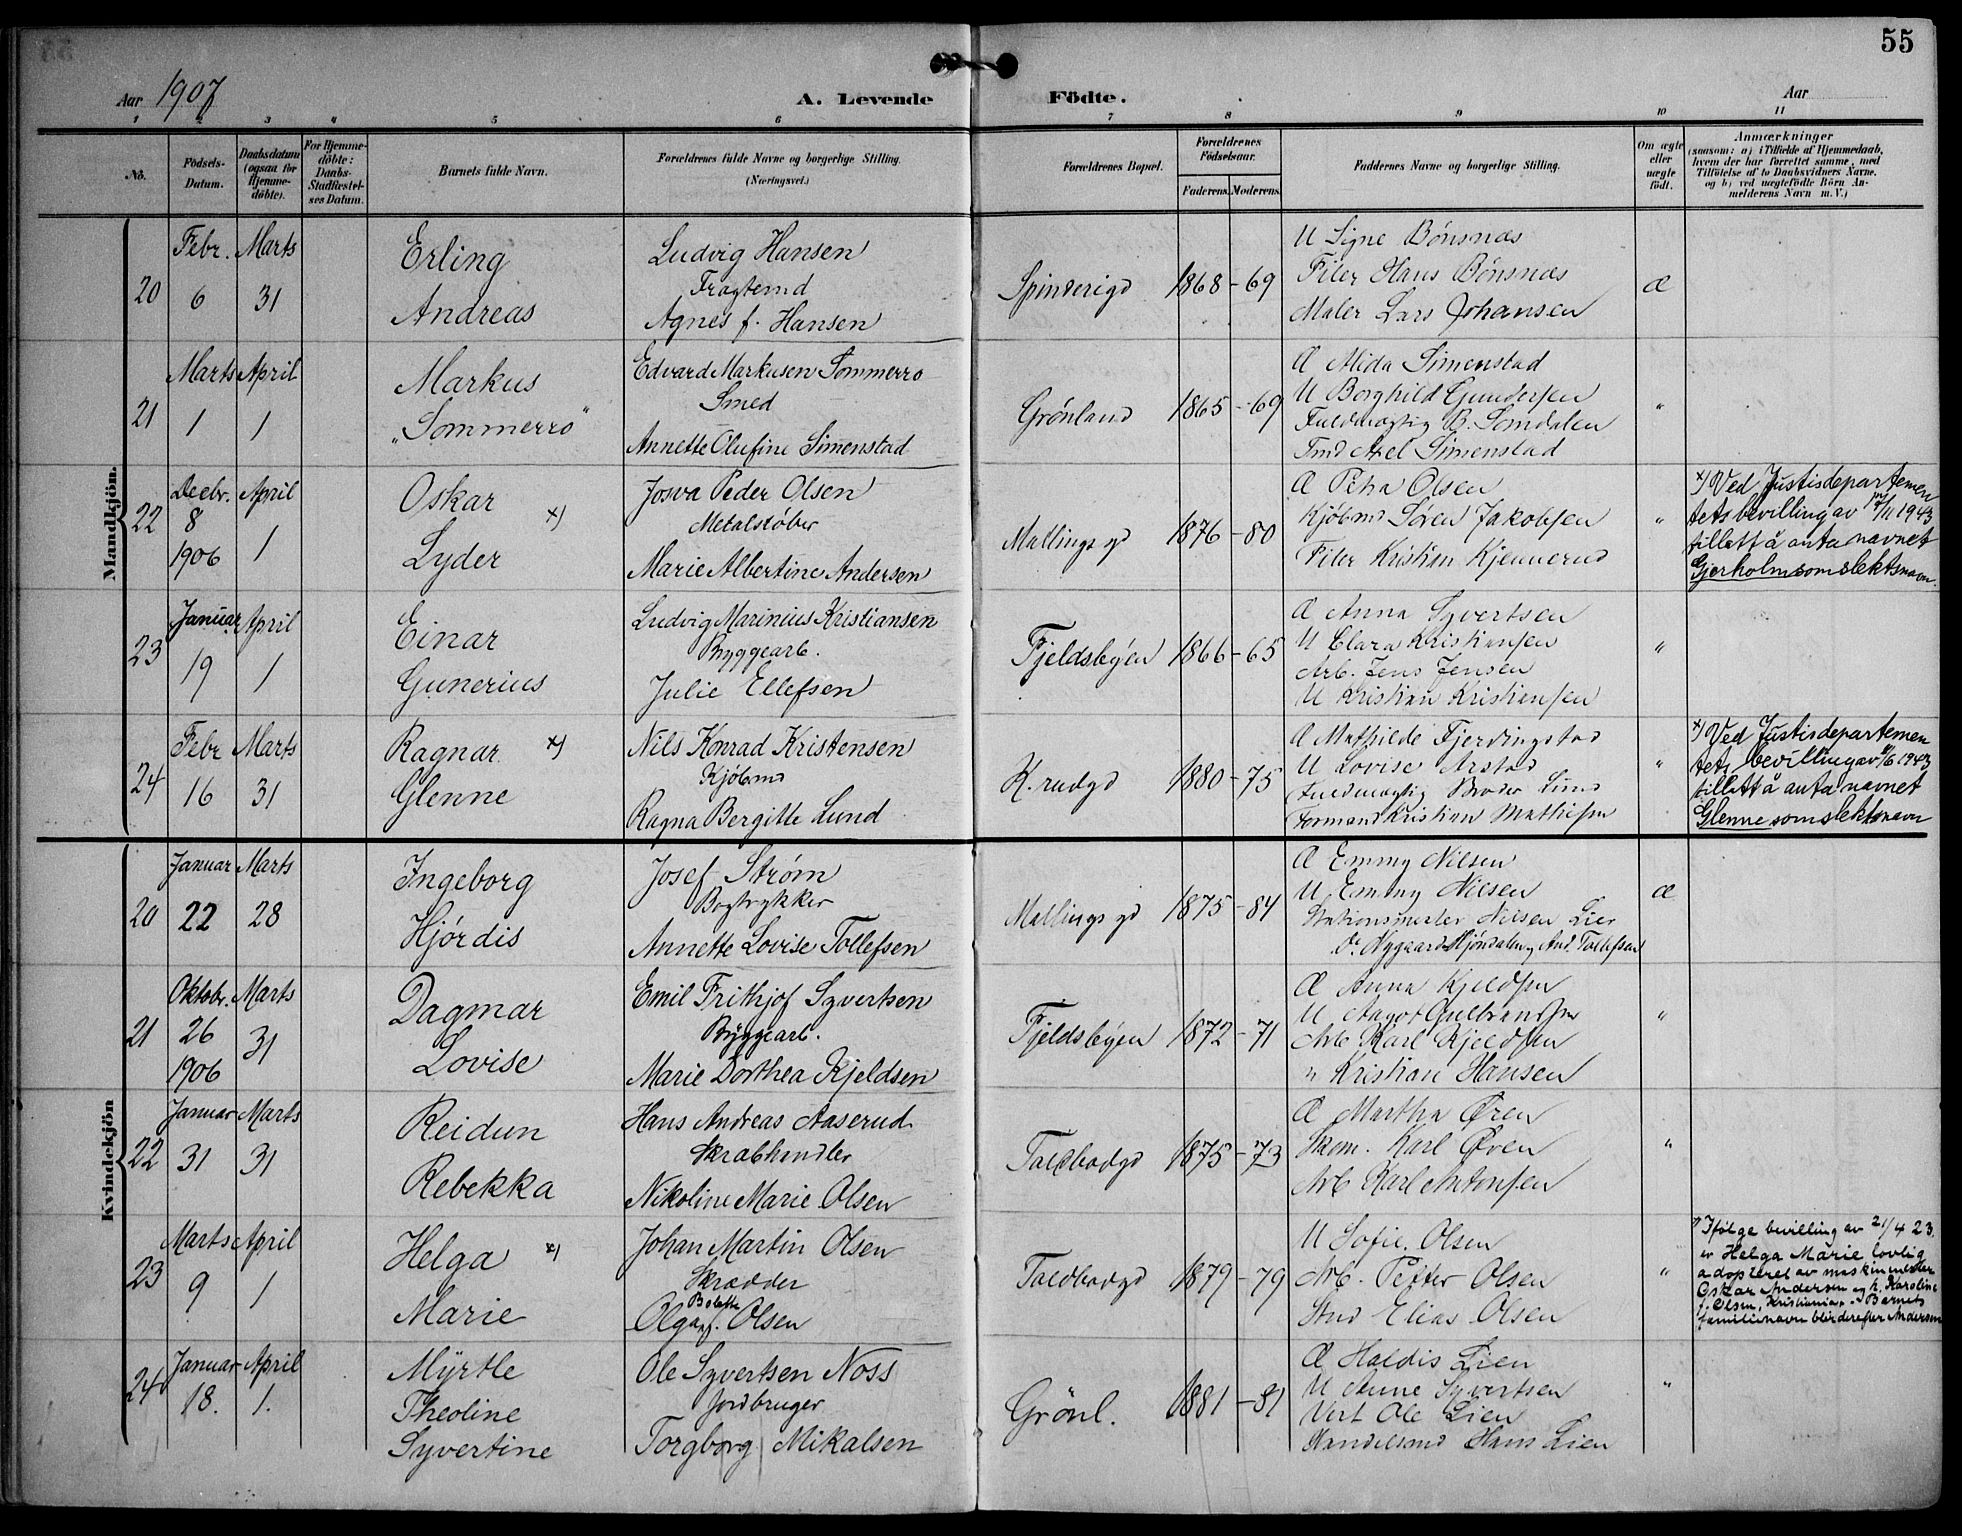 55
Aar 1907
A. Levende Födte.
Aar
1 2 3 4 5 6 7 8 9 10 11
No.
Födsels-Datum.
Daabsdatum (ogsaa for Hjemme-döbte).
For Hjemme-döbte: Daabs-Stadfæstel-ses Datum.
Barnets fulde Navn.
Forældrenes fulde Navne og borgerlige Stilling.
(Næringsvei.)
Forældrenes Bopæl.
Forældrenes Födselsaar.
Faderens. Moderens.
Faddernes Navne og borgerlige Stilling.
Om ægte eller uægte födt.
Anmærkninger
(saasom: a) i Tilfælde af Hjemmedaab,
hvem der har forrettet samme, med
Tilföielse af to Daabsvidners Navne.
og b) ved uægtefödte Börn An-
melderens Navn m. V.)
Mandkjön.
20
Febr. 6
Marts 31
Erling
Andreas
Ludvig Hansen
Fragtemd
Agnes f. Hansen
Spinderigd
1868 - 69
U Signe Bönsnæs
Filer Hans Bönsnæs
Maler Lars Johansen
æ
21
Marts 1
April 1
Markus
"Sommerro"
Edvard Markusen Sommerro
Smed
Annette Olufine Simenstad
Grönland
1865 - 69
Æ Alida Simenstad
U Borghild Gundersen
Fuldmægtig B. Somdalen
Tmd Axel Simenstad
"
22
Decbr. 8 1906
April 1
Oskar x)
Lyder
Josva Peder Olsen
Metalstøber
Marie Albertine Andersen
Mallings gd
1876 - 80
Æ Petra Olsen
Kjöbmd Sören Jakobsen
Filer Kristian Kjennerud
"
x) Ved Justisdepartemen
tets bevilling av 17/11 1943
tillatt å anta navnet
Gjerholm som slektsnavn.
23
Januar 19
April 1
Einar
Gunerius
Ludvig Marinius Kristiansen
Byggearb.
Julie Ellefsen
Fjeldsbyen
1866 - 65
Æ Anna Syvertsen
U Clara Kristiansen
Arb. Jens Jensen
U Kristian Kristiansen
"
24
Febr 16
Marts 31
Ragnar x)
Glenne
Nils Konrad Kristensen
Kjöbmd
Ragna Bergitte Lund
K.rudgd
1880 - 75
Æ Mathilde Fjerdingstad
U Lovise Arstad
Fuldmægtig Broder Lund
Formand Kristian Mathisen
"
x) Ved Justisdepartemen
tets bevilling av 1943
tillatt å anta navnet
Glenne som slektsnavn
Kvindekjön
20
Januar 22
Marts 28
Ingeborg
Hjördis
Josef Ström
Bogtrykker
Annette Lovise Tollefsen
Mallings gd
1875 - 84
Æ Emmy Nilsen
U Emmy Nilsen
Stationsmester Nilsen Lier
Nygaard Mjöndalen, And. Tollefsen
æ
21
Oktobr. 26 1906
Marts 31
Dagmar
Lovise
Emil Frithjof Syvertsen
Byggearb.
Marie Dorthea Kjeldsen
Fjeldsbyen
1872 - 71
Æ Anna Kjeldsen
U Aagot Gulbrandsen
Arb Karl Kjeldsen
" Kristian Hansen
"
22
Januar 31
Marts 31
Reidun
Rebekka
Hans Andreas Aaserud
Skrabhandler
Nikoline Marie Olsen
Toldbodgd
1875 - 73
Æ Martha Øren
Skom. Karl Øren
Arb Karl Antonsen
"
23
Marts 9
April 1
Helga x)
Marie
Johan Martin Olsen
Skrædder
Olga Bolette f. Olsen
Toldbodgd
1879 - 79
U Sofie Olsen
Arb. Petter Olsen
Stud Elias Olsen
"
x) Ifölge bevilling av 21/4 23
er Helga Marie lovlig
adopteret av maskinmester
Oskar Andersen og h. Karoline
f. Olsen, Kristiania. - Barnets
familienavn blir derefter Andersen
24
Januar 18.
April 1.
Myrtle
Theoline
Syvertine
Ole Syvertsen Noss
Jordbruger
Torgborg Mikalsen
Grönl.
1881 - 81
Æ Haldis Lien
U Anne Syvertsen
Vert Ole Lien
Handelsmd Hans Lien
"